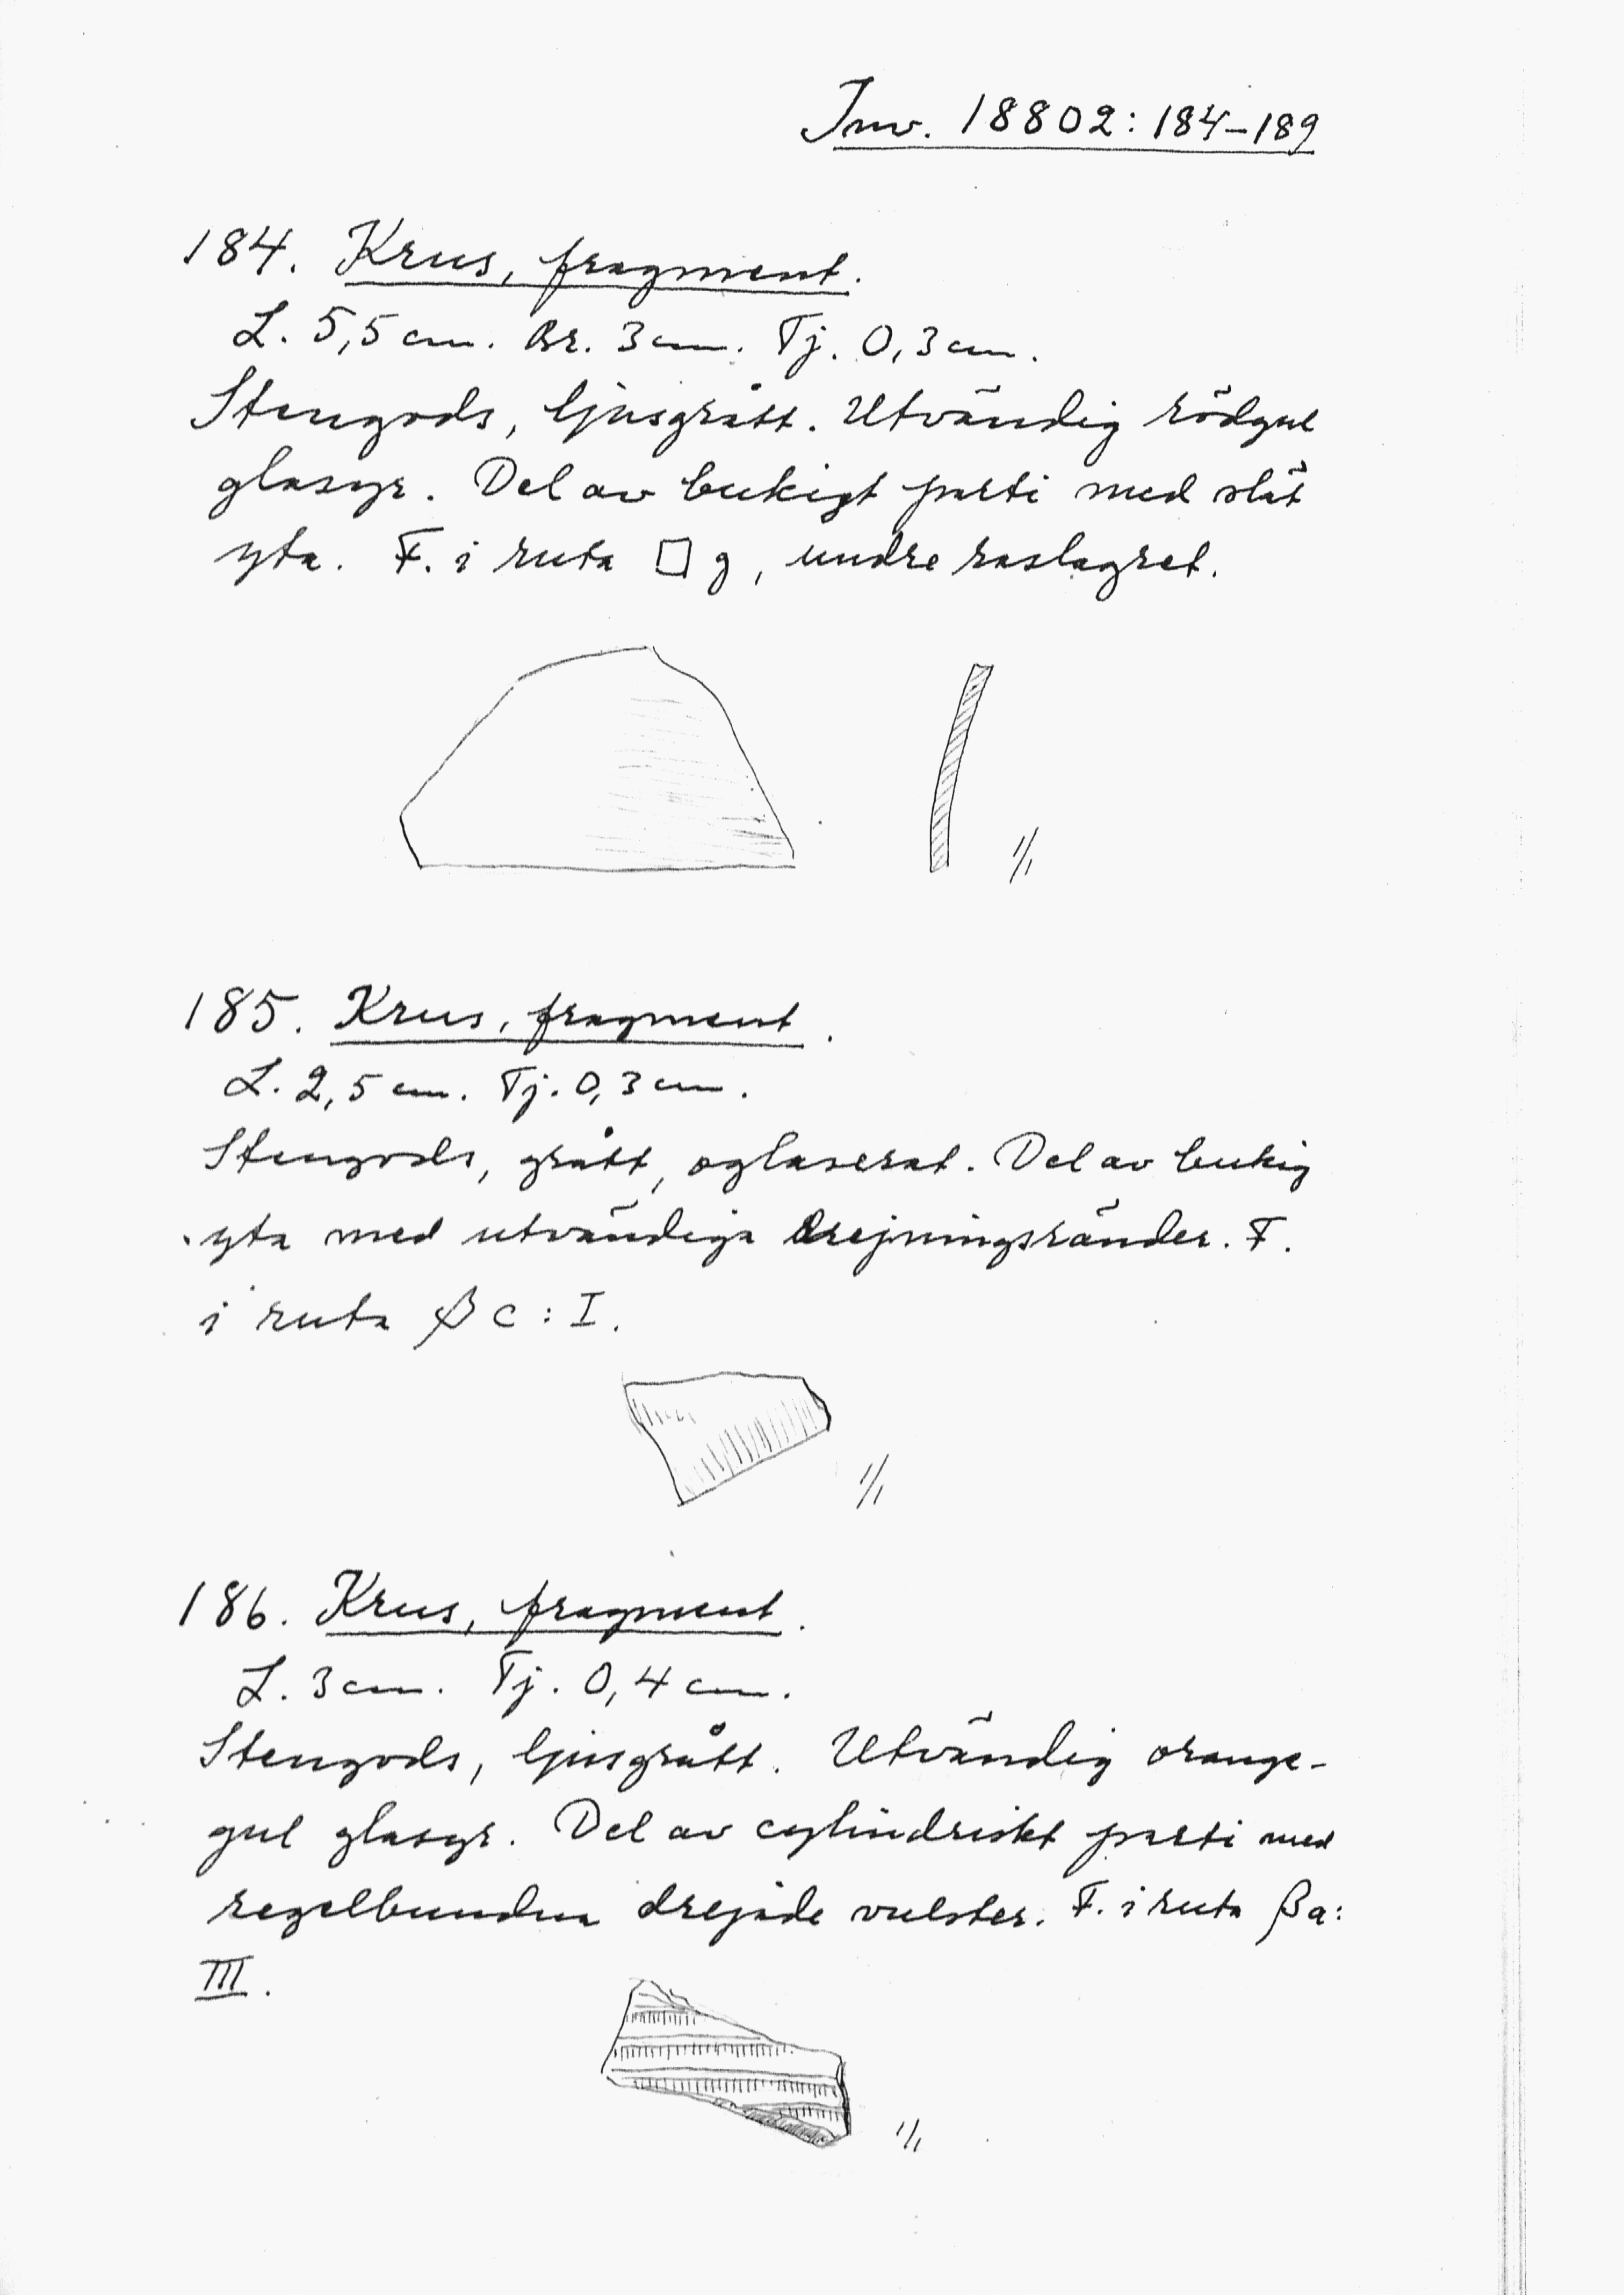 Inv. 18802:184-189
184. Krus, fragment.
L. 5,5 cm. Br. 3 cm. Tj. 0,3 cm.
Stengods, ljusgrått. Utvändig rödgul
glasyr. Del av bukigt parti med slät
yta. F. i ruta □ g, undre raslagret.
1/1
185. Krus, fragment.
L. 2,5 cm. Tj. 0,3 cm.
Stengods, grått, oglaserat. Del av bukig
yta med utvändiga drejningsränder. F.
i ruta β c : I.
1/1
186. Krus, fragment.
L. 3 cm. Tj. 0,4 cm.
Stengods, ljusgrått. Utvändig orange-
gul glasyr. Del av cylindriskt parti med
regelbundna drejade vulster. F. i ruta β a:
III.
1/1